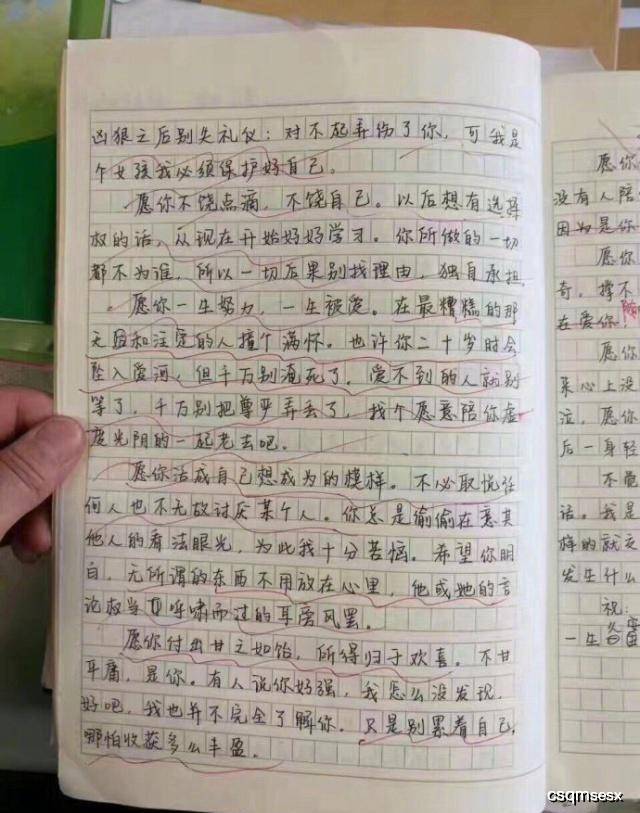 凶狠之后别失礼仪：对不起弄伤了你，可我是
个女孩我必须保护好自己。
愿你不饶点滴，不饶自己。以后想有选择
权的话，从现在开始好好学习。你所做的一切
都不为谁，所以一切后果别找理由，独自承担。
愿你一生努力，一生被爱。在最糟糕的那
天里和注定的人撞个满怀。也许你二十岁时会
坠入爱河，但千万别淹死了，爱不到的人就别
等了，千万别把尊严弄丢了，找个愿意陪你虚
度光阴的一起老去吧。
愿你活成自己想成为的模样。不必取悦任
何人也不无故讨厌某个人。你总是偷偷在意其
他人的看法眼光，为此我十分苦恼。希望你明
白，无所谓的东西不用放在心里，他或她的言
论权当呼啸而过的耳旁风罢。
愿你付出甘之如饴，所得归于欢喜。不甘
平庸，是你。有人说你好强，我怎么没发现，
好吧，我也并不完全了解你。只是别累着自己，
哪怕收获多么丰盈。
愿你
没有人陪
因为是你
愿你
奇，撑不
在爱你！
愿你
来心上没
泣，愿你
后一身轻
不
话。我是
样的就
发生什么
祝：
一生
csqmsesx